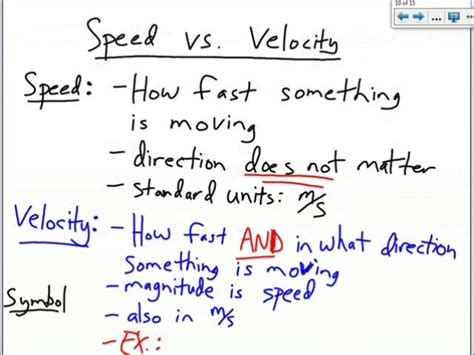 10 of 15
Speed vs. Velocity
Speed: - How fast something
is moving
- direction does not matter
- standard units: m/s
Velocity: - How fast AND in what direction
Something is moving
- magnitude is speed
Symbol
- also in m/s
- Ex.: